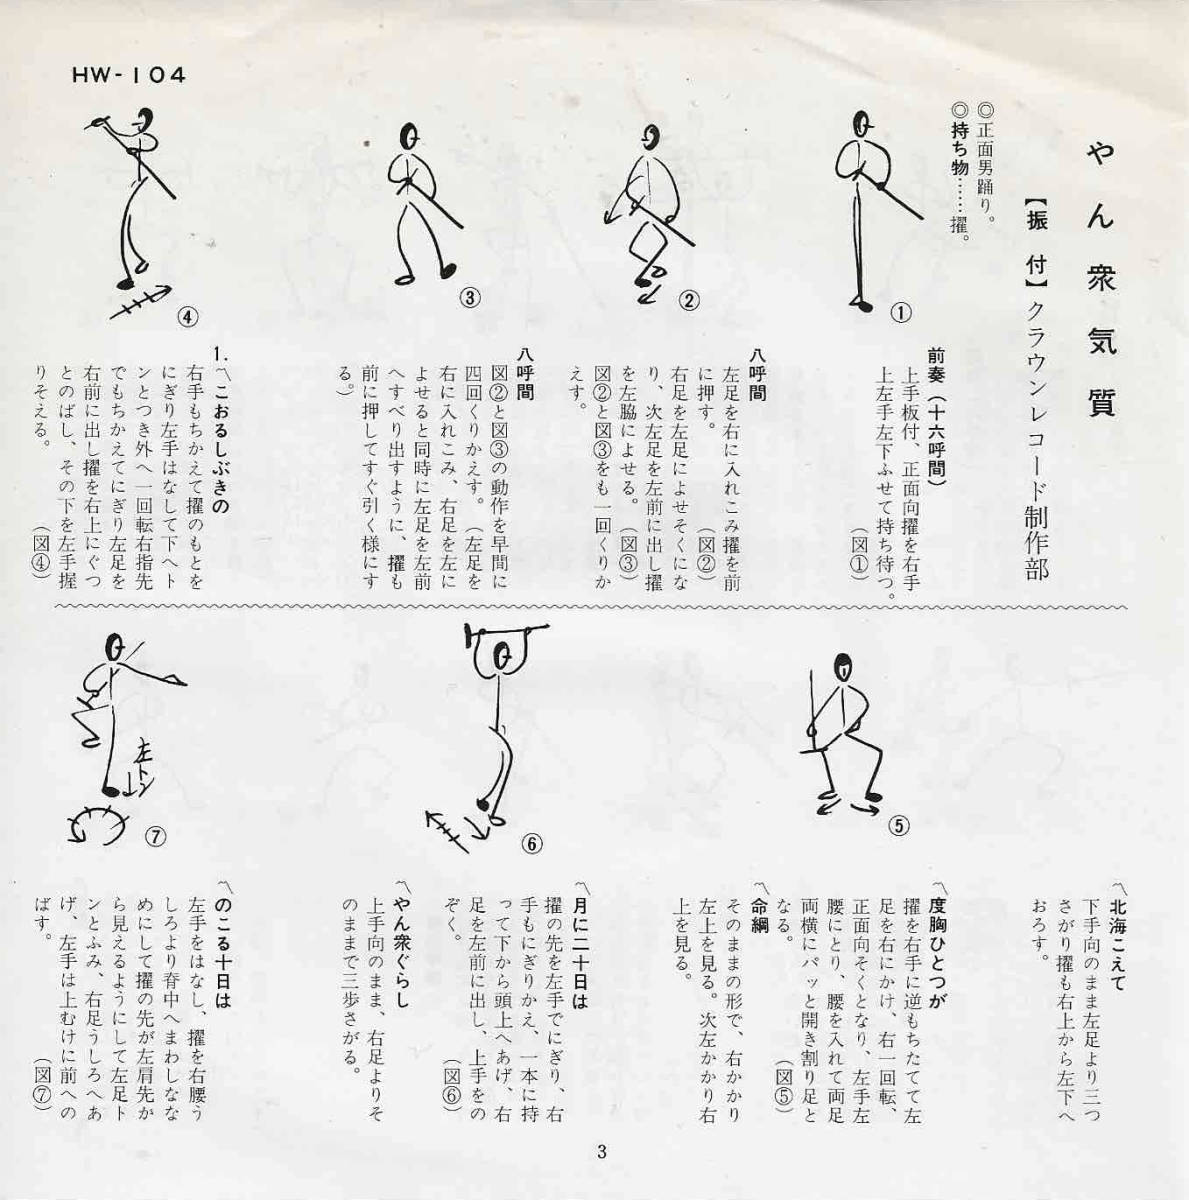 HW-104
やん衆気質
【振付】クラウンレコード制作部
◎正面男踊り。
◎持ち物……擢。
①
②
③
④
前奏（十六呼間）
上手板付、正面向擢を右手
上左手左下ふせて持ち待つ。
（図①）
八呼間
左足を右に入れこみ擢を前
に押す。（図②）
右足を左足によせそくにな
り、次左足を左前に出し擢
を左脇によせる。（図③）
図②と図③をも一回くりか
えす。
八呼間
図②と図③の動作を早間に
四回くりかえす。（左足を
右に入れこみ、右足を左に
よせると同時に左足を左前
へすべり出すように、擢も
前に押してすぐ引く様にす
る。）
1.〽こおるしぶきの
右手もちかえて擢のもとを
にぎり左手はなして下へト
ンとつき外へ一回転右指先
でもちかえてにぎり左足を
右前に出し擢を右上にぐっ
とのばし、その下を左手握
りそえる。（図④）
⑤
⑥
左トン
⑦
〽北海こえて
下手向のまま左足より三つ
さがり擢も右上から左下へ
おろす。
〽度胸ひとつが
擢を右手に逆もちたてて左
足を右にかけ、右一回転、
正面向そくとなり、左手左
腰にとり、腰を入れて両足
両横にパッと開き割り足と
なる。（図⑤）
〽命綱
そのままの形で、右かかり
左上を見る。次左かかり右
上を見る。
〽月に二十日は
擢の先を左手でにぎり、右
手もにぎりかえ、一本に持
って下から頭上へあげ、右
足を左前に出し、上手をの
ぞく。（図⑥）
〽やん衆ぐらし
上手向のまま、右足よりそ
のままで三歩さがる。
〽のこる十日は
左手をはなし、擢を右腰う
しろより脊中へまわしなな
めにして擢の先が左肩先か
ら見えるようにして左足ト
ンとふみ、右足うしろへあ
げ、左手は上むけに前への
ばす。（図⑦）
3